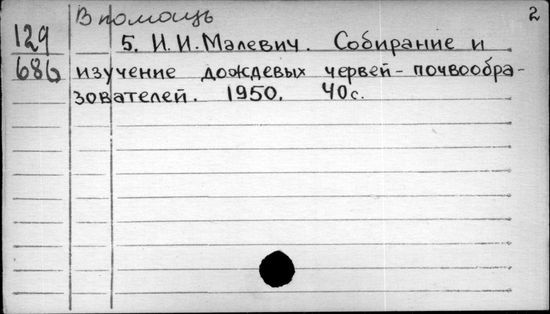 В помощь
2
129
5. И.И. Малевич. Собирание и
686
изучение дождевых червей - почвообра-
зователей. 1950. 40 с.